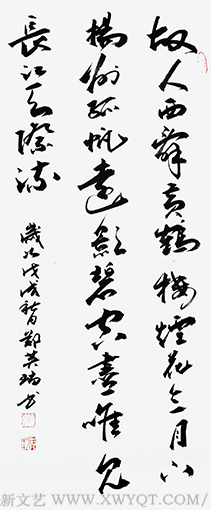 故人西辭黃鶴樓煙花三月下
揚州孤帆遠影碧空盡唯見
長江天際流
歲次戊戌秋月鄭英瑞书
新文艺（WWW.XWYQT.COM